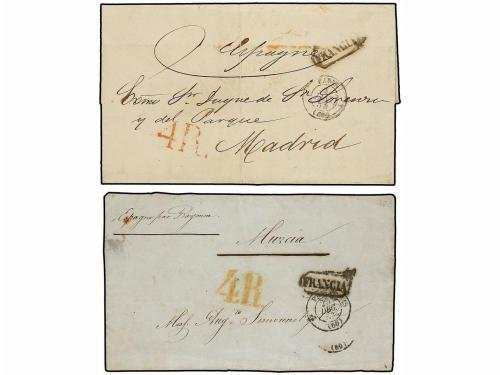 Espagne
FRANCIA
Exmo Sr Duque de Sn Lorenzo
y del Parque
4R.
Madrid
(60)
Espagne par Bayonne
Murcia
4R
FRANCIA
(60)
(60)